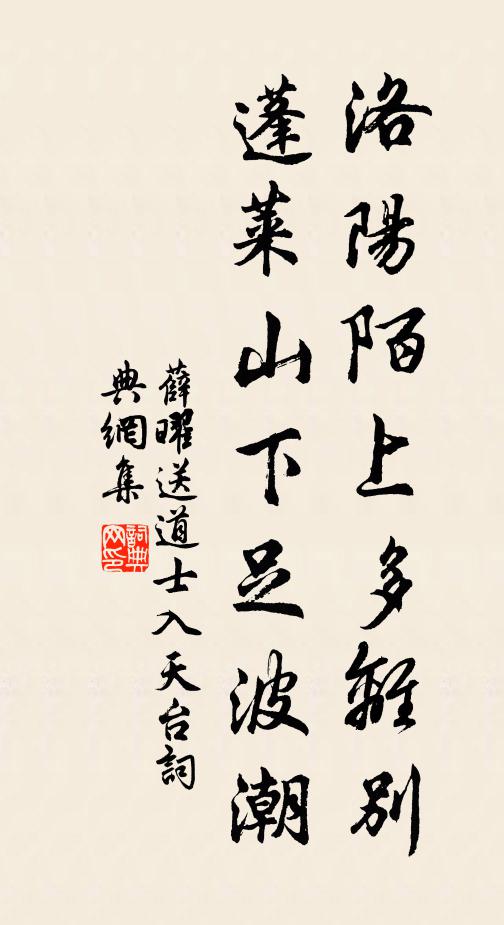 洛陽陌上多離別
蓬萊山下足波潮
薛曜送道士入天台詞
典網集
詞典網印